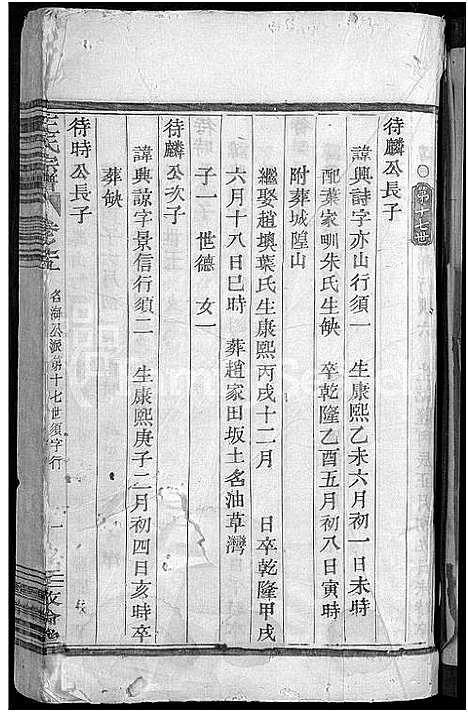 第十七世
待麟公長子
諱興詩字亦山行須一　生康熙乙未六月初一日未時
配葉家㘭朱氏生缺　卒乾隆乙酉五月初八日寅時
附葬城隍山
繼娶趙墺葉氏生康熙丙戌十二月　日卒乾隆甲戌
六月十八日巳時　葬趙家田坂土名油草灣
子一　世德　女一
待麟公次子
諱興諒字景信行須二　生康熙庚子二月初四日亥時卒
葬缺
待時公長子
氏宗譜
名海公派第十七世須字行
一